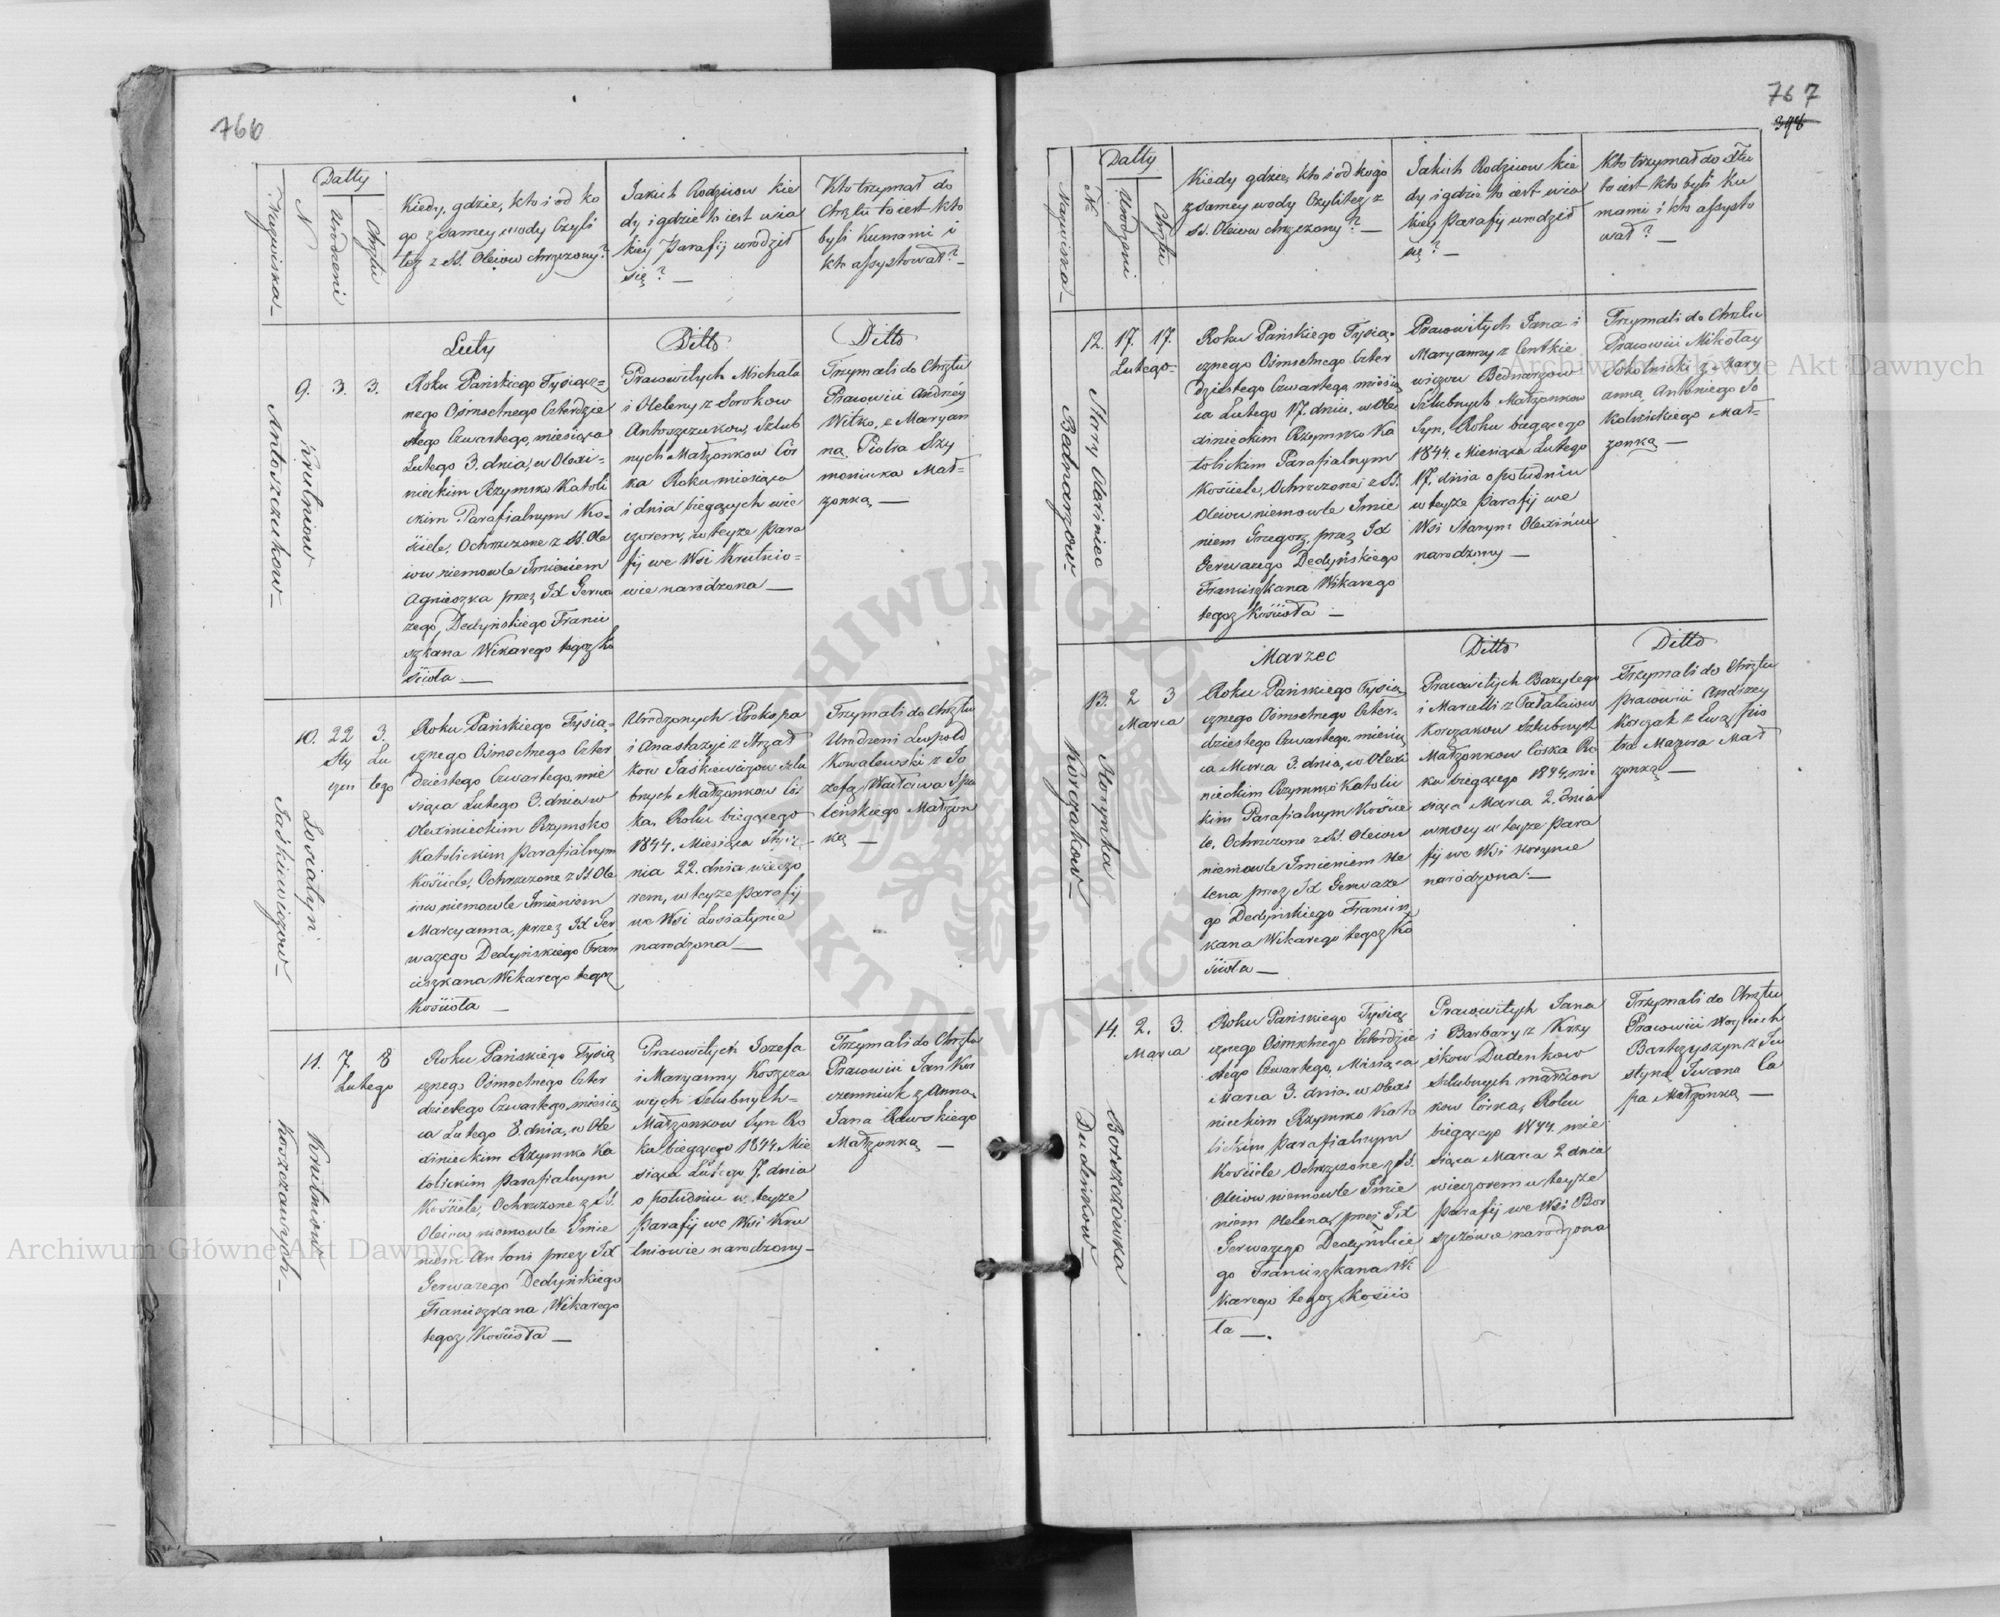 766
Datty
Nazwiska
N
Urodzeni
Chrztu
Kiedy, gdzie, kto i od ko
go z samey wody Czyli
też z SS. Oleiow chrzczony?
Jakich Rodzicow kie
dy i gdzie to iest w ia
kiey Parafij urodził
się? —
Kto trzymał do
Chrztu to iest kto
byli Kumami i
kto assystował? —
9. 3. 3.
Krutniow
Antoszczukow
Luty
Roku Pańskiego Tysiącz=
nego Ośmsetnego Czterdzie
stego Czwartego, miesiąca
Lutego 3. dnia, w Olexi=
nieckim Rzymsko Katoli
ckim Parafialnym Ko=
ściele, Ochrzczone z SS. Ole
iow niemowle Imieniem
Agnieszka przez Jx Gerwa
zego Dedyńskiego Franci
szkana Wikarego tegoz Ko
ścioła —
Ditto
Pracowitych Michała
i Oleleny z Sorokow
Antoszczukow, Szlub
nych Małżonkow Cór
ka Roku miesiąca
i dnia biegących wie
czorem, w teyże Para
fij we Wsi Krutnio=
wie narodzona —
Ditto
Trzymali do Chrztu
Pracowici Andrzey
Witko, z Maryan
ną Piotra Szy
moniuka Mał=
żonką —
10. 22 3.
Sty Lu
czen tego
Łosiatyn
Jaśkiewiczow
Roku Pańskiego Tysią=
cznego Ośmsetnego Czter
dziestego Czwartego, mie
siąca Lutego 3. dnia w
Olexinieckim Rzymsko
Katolickim Parafialnym
Kościele, Ochrzczone z SS Ole
iow niemowle Imieniem
Marcyanna, przez Jx Ger
wazego Dedyńskiego Fran
ciszkana Wikarego tegoz
Kościoła —
Urodzonych Prokopa
i Anastazyi z Strzał
kow Jaśkiewiczow szlu
bnych Małżonkow Cór
ka, Roku biegącego
1844. Miesiąca Stycz=
nia 22. dnia wieczo
rem, w teyże Parafij
we Wsi Łosiatynie
narodzona —
Trzymali do Chrztu
Urodzeni Leopold
Kowalewski z Jo
zefą Wacława
leńskiego Małżon
ką —
11. 7 8
Lutego
Krutniow
Koszczawych
Roku Pańskiego Tysią
cznego Ośmsetnego Czter
dziestego Czwartego, miesią
ca Lutego 8. dnia, w Ole
xinieckim Rzymsko Ka
tolickim Parafialnym
Kościele, Ochrzczone z SS.
Oleiow niemowle Imie
niem Antoni przez Jx
Gerwazego Dedyńskiego
Franciszkana Wikarego
tegoz Kościoła —
Pracowitych Jozefa
i Maryanny Koszcza
wych Szlubnych=
Małżonkow Syn Ro
ku biegącego 1844. Mie
siąca Lutego 7. dnia
o południu w teyże
Parafij we Wsi Kru
tniowie narodzony —
Trzymali do Chrztu
Pracowici Jan Kor
czemniuk z Anną
Jana Rawskiego
Małżonką —
767
348
Datty
Nazwiska
N
Urodzeni
Chrztu
Kiedy gdzie, kto i od kogo
z samey wody Czyli też z
SS. Oleiow chrzczony? —
Jakich Rodzicow kie
dy i gdzie to iest w ia
kiey Parafij urodził
się? —
Kto trzymał do Chrtu
to iest kto byli Ku
mami i kto assysto
wał? —
12. 17. 17.
Lutego
Stary Olexiniec
Bednarzow
Roku Pańskiego Tysią=
cznego Ośmsetnego Czter
dziestego Czwartego, miesią
ca Lutego 17. dnia, w Ole
xinieckim Rzymsko Ka
tolickim Parafialnym
Kościele, Ochrzczone z SS.
Oleiow niemowle Imie
niem Grzegorz, przez Jx
Gerwazego Dedyńskiego
Franciszkana Wikarego
tegoz Kościoła —
Pracowitych Jana i
Maryanny z Centkie
wiczow Bednarzow
Szlubnych Małżonkow
Syn, Roku biegącego
1844. Miesiąca Lutego
17. dnia o południu
w teyże Parafij we
Wsi Starym Olexińcu
narodzony —
Trzymali do Chrztu
Pracowici Mikołay
Sokolnicki z Mary
anną Antoniego So
kolnickiego Mał=
żonką —
13. 2 3
Marca
Horynka
Korczakow
Marzec
Roku Pańskiego Tysią
cznego Ośmsetnego Czter=
dziestego Czwartego, miesią
ca Marca 3. dnia, w Olexi
nieckim Rzymsko Katolic
kim Parafialnym Koście
le, Ochrzczone z SS. Oleiow
niemowle Imieniem He
lena przez Jx Gerwaze
go Dedyńskiego Francisz
kana Wikarego tegoz Ko
ścioła —
Ditto
Pracowitych Bazylego
i Marcelli z Pałataiow
Korczakow Szlubnych
Małżonkow Córka Ro
ku biegącego 1844. mie
siąca Marca 2. dnia
w nocy w teyże Para
fij we Wsi Horynce
narodzona —
Ditto
Trzymali do Chrztu
pracowici Andrzey
Korczak z Ewą Pio
tra Mazura Mał
żonką —
14. 2. 3.
Marca
Borszczowka
Dudeńkow
Roku Pańskiego Tysią
cznego Ośmsetnego Czterdzie
stego Czwartego, Miesiąca
Marca 3. dnia, w Olexi
nieckim Rzymsko Kato
lickim Parafialnym
Kościele Ochrzczone z SS.
Oleiow niemowle Imie
niem Helena, przez Jx
Gerwazego Dedyńskie
go Franciszkana Wi
karego tegoz Kościo
ła —.
Pracowitych Jana
i Barbary z Krzy
śkow Dudenkow
Szlubnych małżon
kow Córka, Roku
biegącego 1844. mie
siąca Marca 2 dnia
wieczorem w teyże
Parafij we Wsi Bor
szczówce narodzona
Trzymali do Chrztu
Pracowici Woyciech
Bartczyszyn z Ju
styną Iwana Ca
pa Małżonką —
Archiwum Główne Akt Dawnych
Archiwum Główne Akt Dawnych
ARCHIWUM GŁÓWNE AKT DAWNYCH